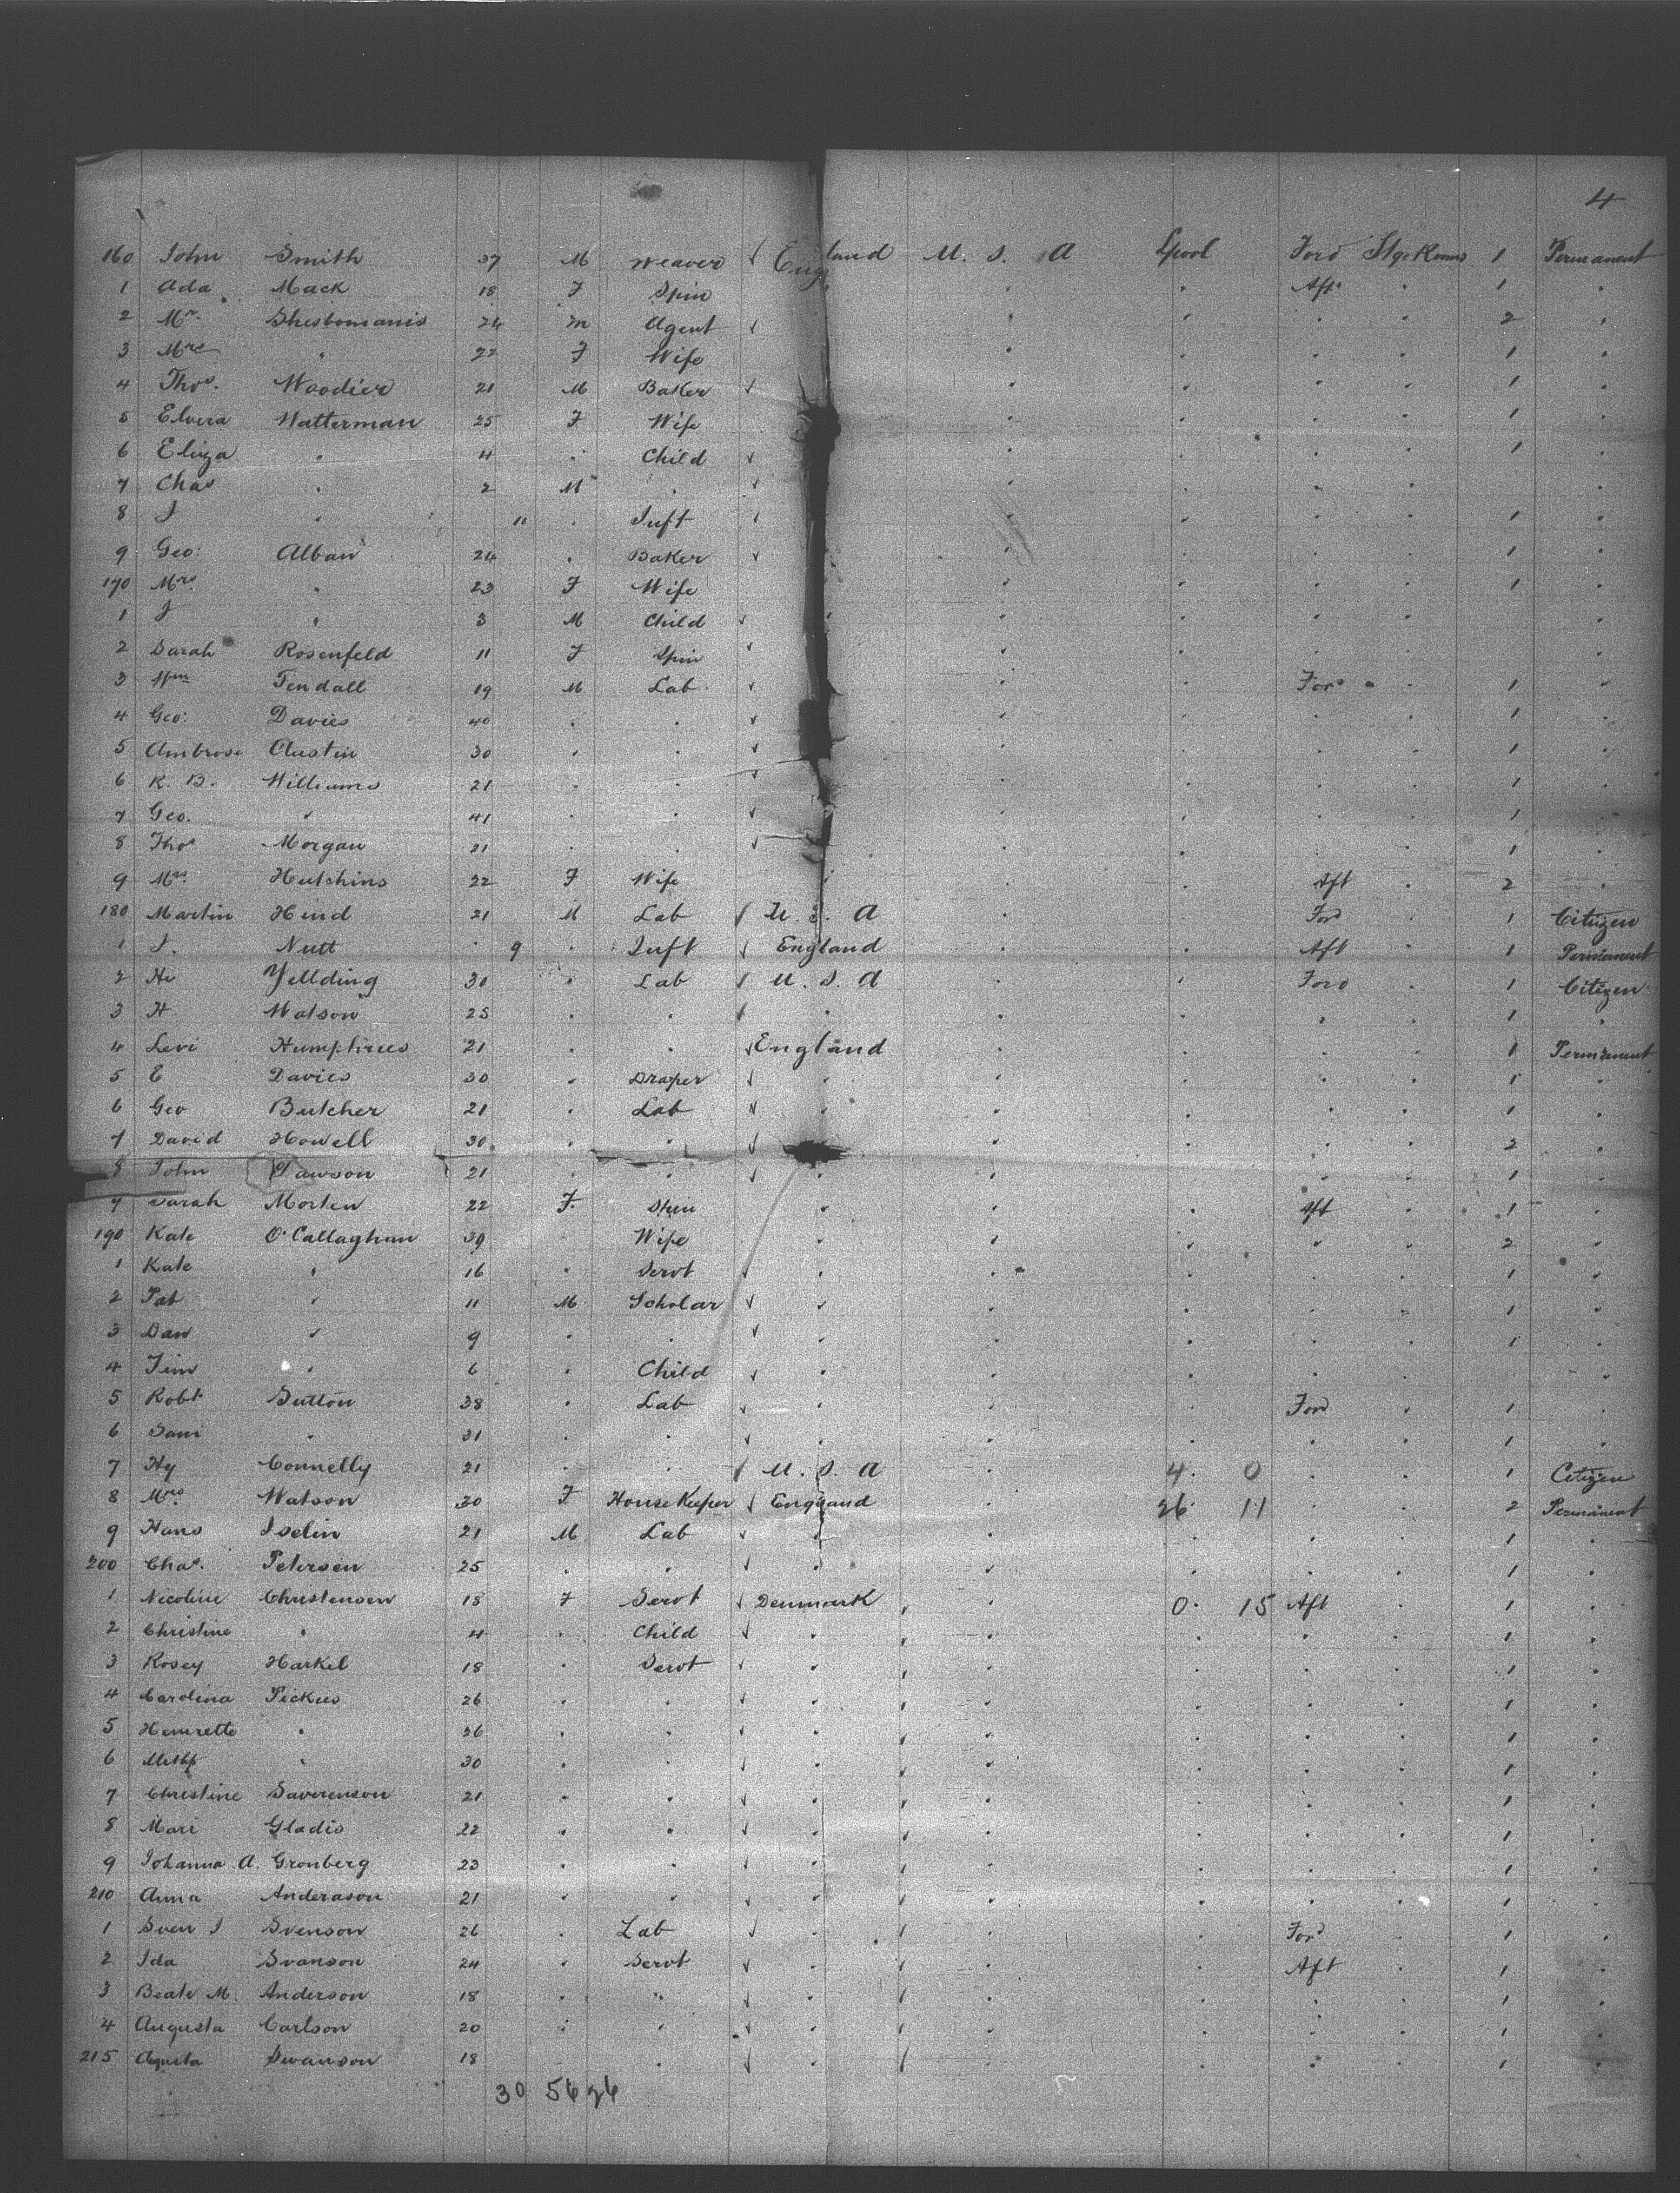 4
160 John Smith 37 M Weaver ✓ England U. S. A Lpool Ford Stge Rooms 1 Permanent
1 Ada Mack 18 F Spin " " " Aft " 1 "
2 Mr. 24 M Agent ✓ " " " " 2 "
3 Mrs " 22 F Wife " " " " 1 "
4 Thos. Woodier 21 M Baker ✓ " " " " 1 "
5 Elvera Watterman 25 F Wife " " " " 1 "
6 Eliza " 4 " Child ✓ " " " " 1 "
7 Chas " 2 M " ✓ " " " " "
8 J " 11 " Inft ✓ " " " " 1 "
9 Geo: Alban 24 " Baker ✓ " " " " 1 "
170 Mrs " 23 F Wife " " " " 1 "
1 J " 3 M Child ✓ " " " " " "
2 Sarah Rosenfeld 11 F Spin ✓ " " " "
3 Wm Tendall 19 M Lab. ✓ " " Ford " 1 "
4 Geo: Davies 40 " " ✓ " " " 1 "
5 Ambrose Austin 30 " " ✓ " " " " 1 "
6 R. B. Williams 21 " " ✓ " " " 1 "
7 Geo. " 41 " " ✓ " " " " 1 "
8 Thos Morgan 21 " " ✓ " " " " 1 "
9 Mrs. Hutchins 22 F Wife " " " Aft " 2 "
180 Martin Hind 21 M Lab ✓ U. S. A " " Ford " 1 Citizen
1 J. Nutt " 9 " Inft ✓ England " " Aft " 1 Permanent
2 Hy Yellding 30 " Lab ✓ U. S. A " " Ford " 1 Citizen
3 H Watson 25 " " ✓ " " " " " 1 "
4 Levi Humphries 21 " " ✓ England " " " " 1 Permanent
5 E Davies 30 " Draper ✓ " " " " " 1 "
6 Geo Butcher 21 " Lab ✓ " " " " " 1 "
7 David Howell 30 " " ✓ " " " " 2 "
8 John Dawson 21 " " ✓ " " " " " 1 "
9 Sarah Morten 22 F. Spin " " Aft " 1 "
190 Kate O'Callaghan 39 Wife " " " " " 2 "
1 Kate " 16 " Servt ✓ " " " " " 1 "
2 Pat " 11 M Scholar ✓ " " " " " 1 "
3 Dan " 9 " " ✓ " " " " " 1 "
4 Tim " 6 " Child ✓ " " " " " "
5 Robt Sutton 38 " Lab ✓ " " " Ford " 1 "
6 Sam " 31 " " ✓ " " " " " 1 "
7 Hy Connelly 21 " " ✓ U. S. A " 4. 0 " " 1 Citizen
8 Mrs. Watson 30 F House Keeper ✓ England " 26. 11 " " 2 Permanent
9 Hans Iselin 21 M Lab ✓ " " " " " 1 "
200 Chas. Petersen 25 " " ✓ " " " " " 1 "
1 Nicoline Christensen 18 F Servt ✓ Denmark " 0. 15 Aft " 1 "
2 Christine " 4 " Child ✓ " " " " " 1 "
3 Rosey Harkel 18 " Servt ✓ " " " " " 1 "
4 Carolina Pickus 26 " " ✓ " " " " " 1 "
5 " 26 " " ✓ " " " " " 1 "
6 " 30 " " ✓ " " " " " 1 "
7 Christine Saverenson 21 " " ✓ " " " " " 1 "
8 Mari Gladis 22 " " ✓ " " " " " 1 "
9 Johanna A. Gronberg 23 " " ✓ " " " " " 1 "
210 Anna Anderason 21 " " ✓ " " " " " 1 "
1 Sven J Svenson 26 " Lab ✓ " " " Ford " 1 "
2 Ida Svanson 24 " Servt ✓ " " " Aft " 1 "
3 Beate M. Anderson 18 " " ✓ " " " " " 1 "
4 Augusta Carlson 20 " " ✓ " " " " " 1 "
215 Agusta Swanson 18 " ✓ " " " " 1 "
30 56 26